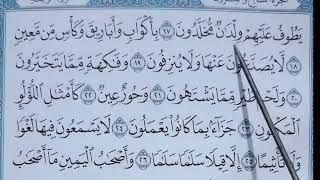 يَطُوفُ عَلَيْهِمْ وِلْدَٰنٌ مُّخَلَّدُونَ ١٧ بِأَكْوَابٍ وَأَبَارِيقَ وَكَأْسٍ مِّن مَّعِينٍ
١٨ لَّا يُصَدَّعُونَ عَنْهَا وَلَا يُنزِفُونَ ١٩ وَفَٰكِهَةٍ مِّمَّا يَتَخَيَّرُونَ
٢٠ وَلَحْمِ طَيْرٍ مِّمَّا يَشْتَهُونَ ٢١ وَحُورٌ عِينٌ ٢٢ كَأَمْثَٰلِ ٱللُّؤْلُؤِ
ٱلْمَكْنُونِ ٢٣ جَزَآءًۢ بِمَا كَانُوا۟ يَعْمَلُونَ ٢٤ لَا يَسْمَعُونَ فِيهَا لَغْوًا
وَلَا تَأْثِيمًا ٢٥ إِلَّا قِيلًا سَلَٰمًا سَلَٰمًا ٢٦ وَأَصْحَٰبُ ٱلْيَمِينِ مَآ أَصْحَٰبُ